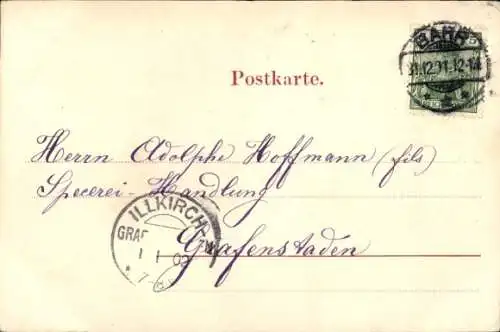 BARR
31.12.01.12-1N
Postkarte.
Herrn Adolphe Hoffmann (fils)
Specerei-Handlung
Grafenstaden
ILLKIRCH
GRAF
1 1 02
7-8